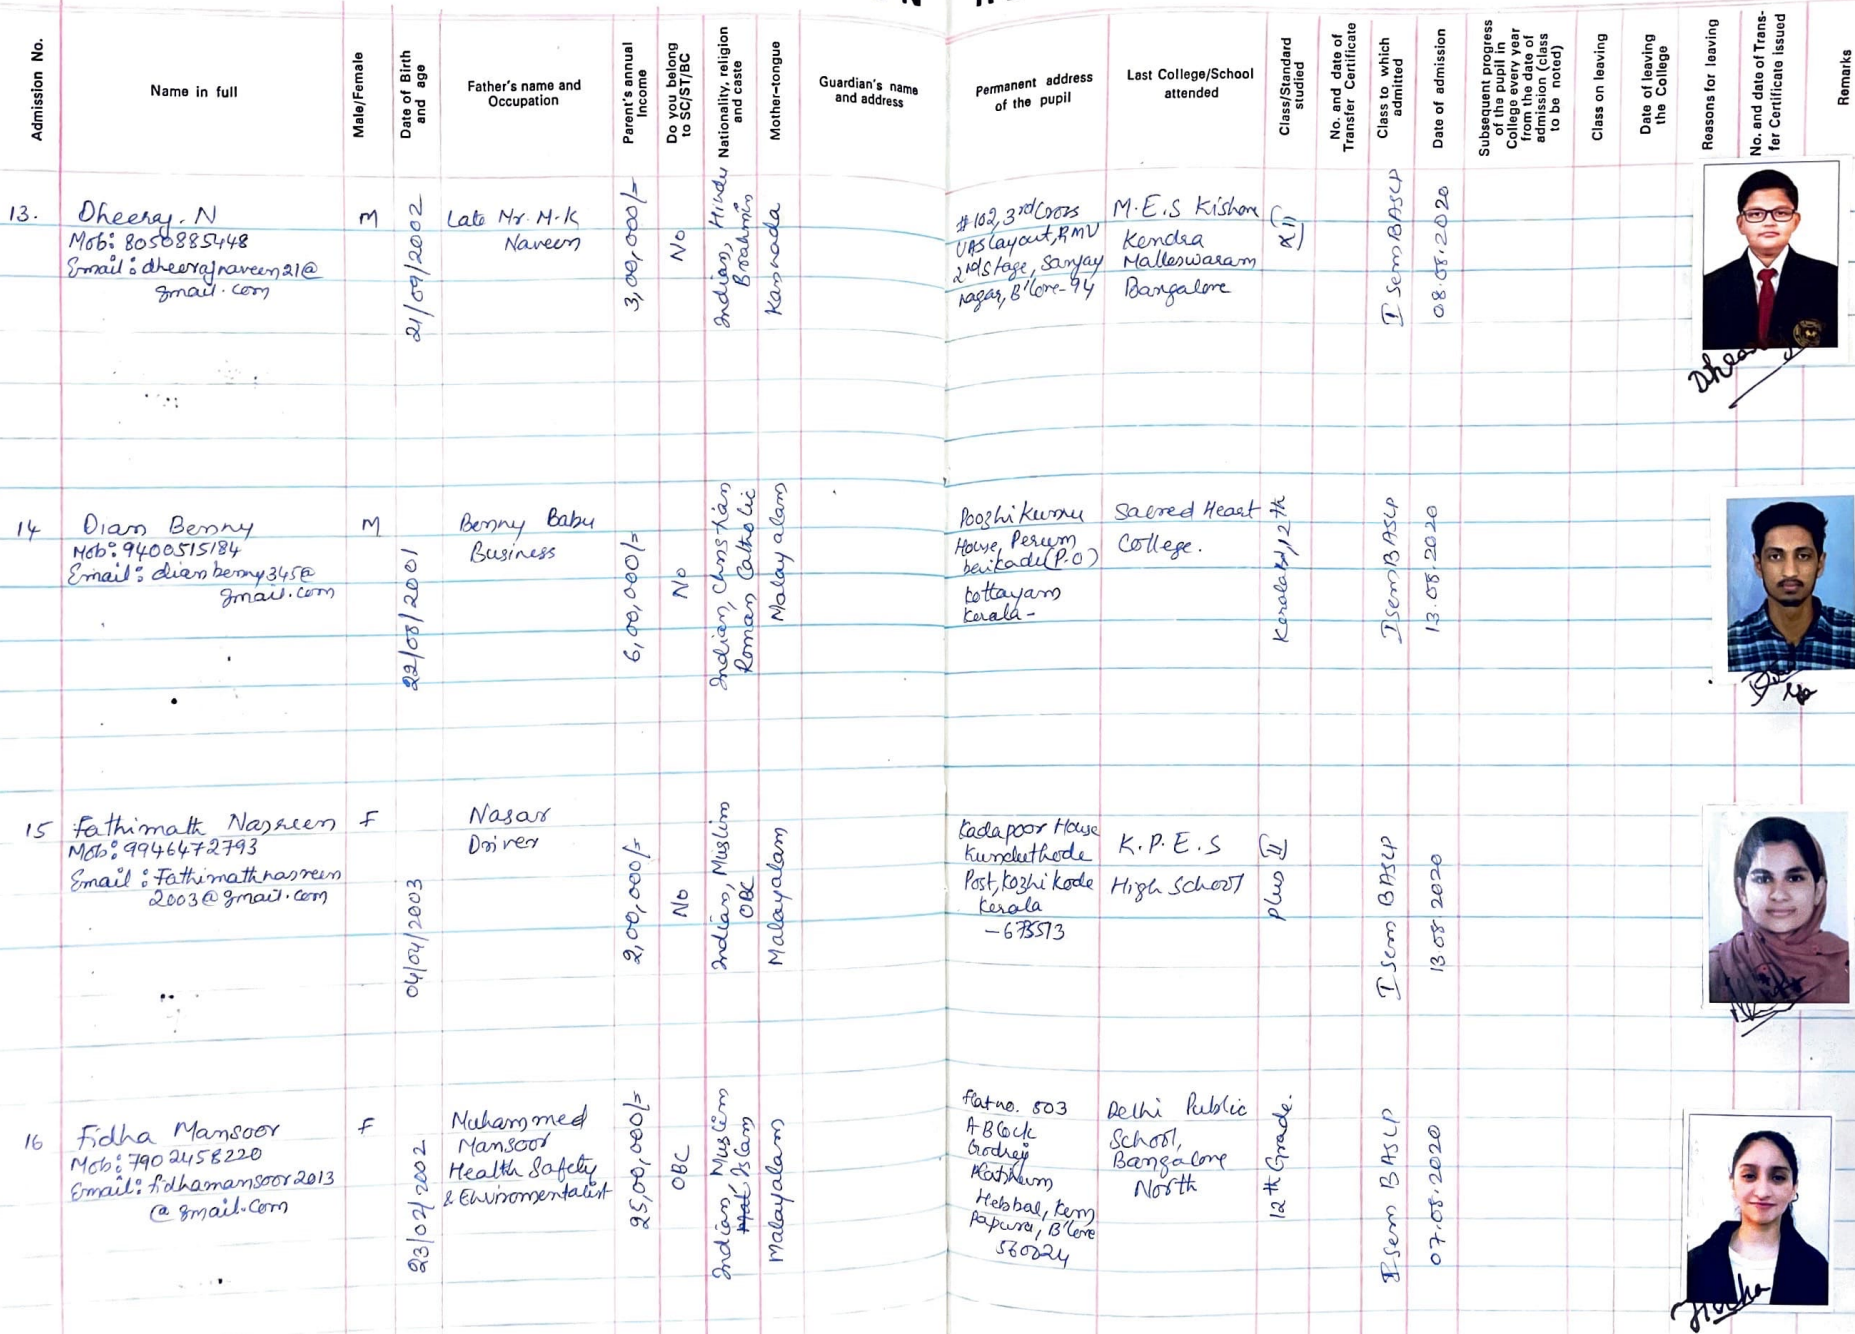 Admission No.
Name in full
Male/Female
Date of Birth
and age
Father's name and
Occupation
Parent's annual
Income
Do you belong
to SC/ST/BC
Nationality, religion
and caste
Mother-tongue
Guardian's name
and address
Permanent address
of the pupil
Last College/School
attended
Class/Standard
studied
No. and date of
Transfer Certificate
Class to which
admitted
Date of admission
Subsequent progress
of the pupil in
College every year
from the date of
admission (class
to be noted)
Class on leaving
Date of leaving
the College
Reasons for leaving
No. and date of Trans-
fer Certificate issued
Remarks
13.
Dheeraj. N
Mob: 8050885448
Email: dheerajnaveen21@
gmail.com
M
21/09/2002
Late Mr. M.K
Naveen
3,00,000/=
No
Indian, Hindu
Brahmin
Kannada
#102, 3rd Cross
UAS Layout, RMV
2nd Stage, Sanjay
nagar, B'lore-94
M.E.S Kishore
Kendra
Malleswaram
Bangalore
XII
I sem BASLP
08.08.2020
14
Dian Benny
Mob: 9400515184
Email: dianbenny345@
gmail.com
M
22/08/2001
Benny Babu
Business
6,00,000/=
No
Indian, Christian
Roman Catholic
Malayalam
Poozhikunnu
House, Perum
baikadu(P.O)
Kottayam
Kerala-
Sacred Heart
College.
12th
I sem BASLP
13.08.2020
15
Fathimath Nasreen
Mob: 9946472793
Email: Fathimathnasreen
2003@gmail.com
F
04/04/2003
Nasar
Driver
2,00,000/=
No
Indian, Muslim
OBC
Malayalam
Kadapoor House
Kunduthode
Post, Kozhikode
Kerala
-673513
K.P.E.S
High School
plus II
I sem BASLP
13.08.2020
16
Fidha Mansoor
Mob: 7902458220
Email: fidhamansoor2013
@gmail.com
F
23/02/2002
Muhammed
Mansoor
Health Safety
& Enviromentalist
25,00,000/=
OBC
Indian, Muslim
Islam
Malayalam
Flat no. 503
A Block
Godrej
Platinum
Hebbal, Kem
papura, B'lore
560024
Delhi Public
School,
Bangalore
North
12th Grade.
I sem BASLP
07.08.2020